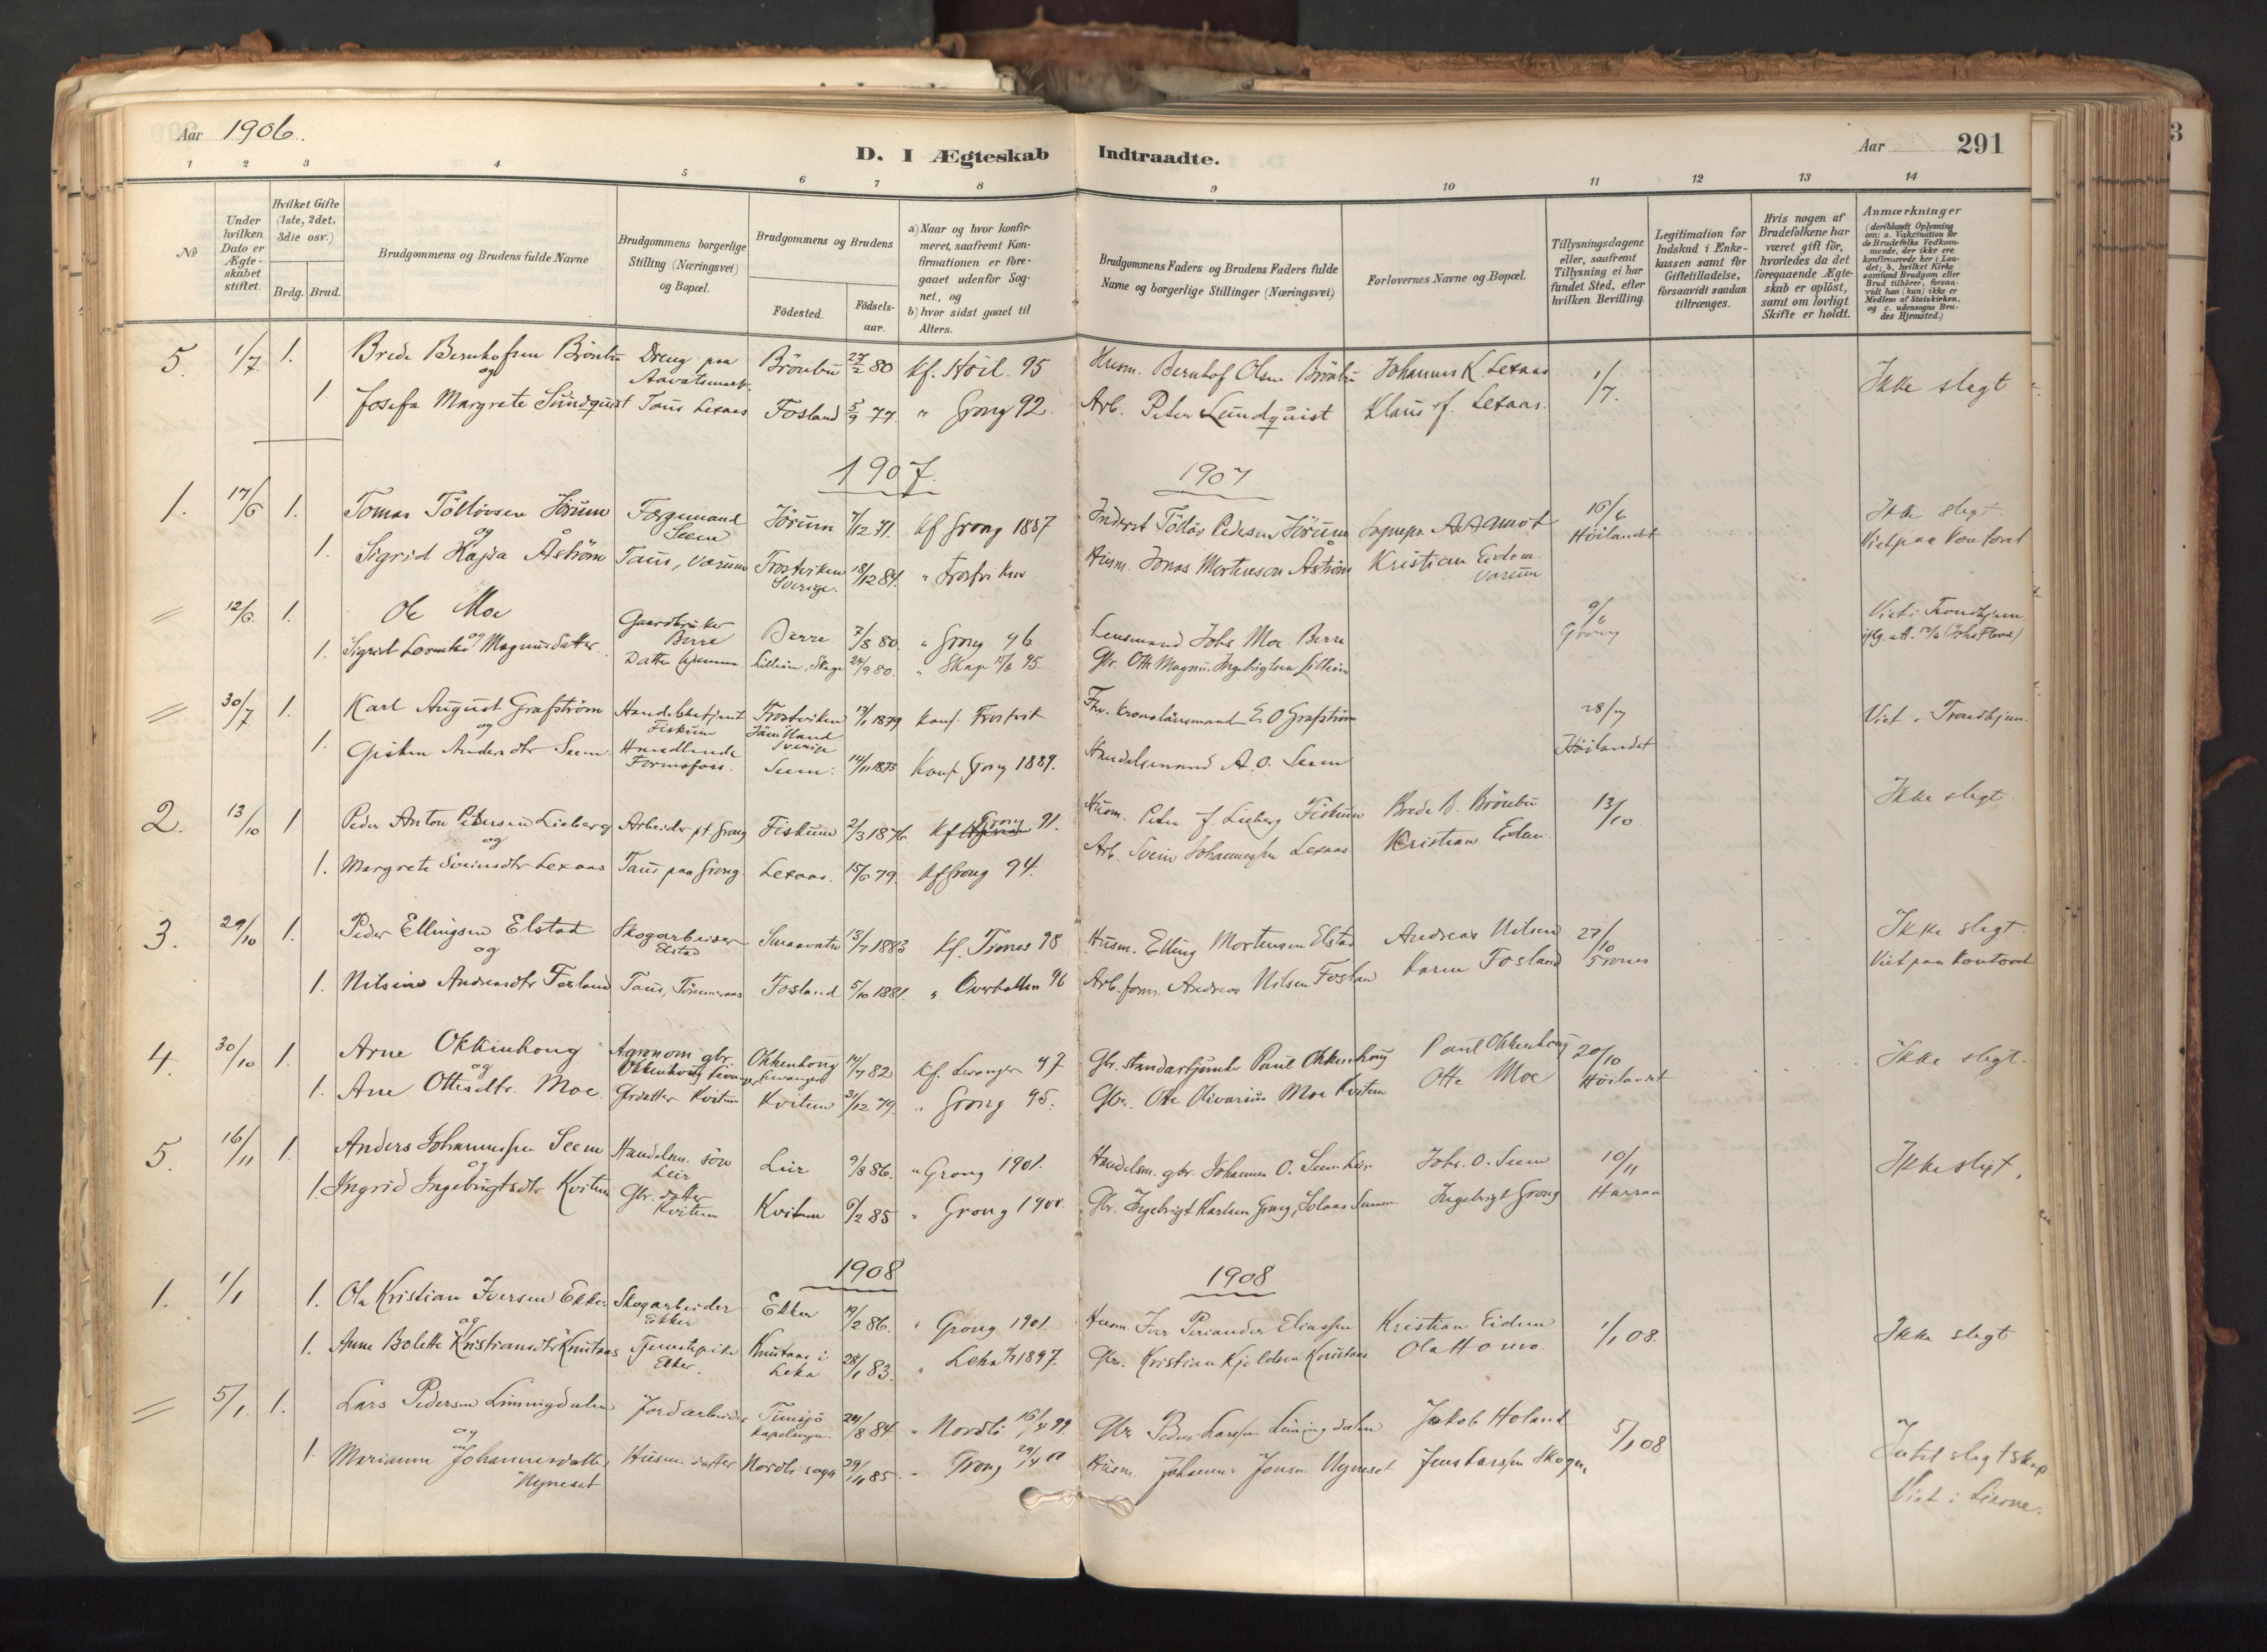 Aar 1906.
D. I Ægteskab Indtraadte.
Aar 291
1 2 3 4 5 6 7 8 9 10 11 12 13 14
No
Under hvilken Dato er Ægteskabet stiftet.
Hvilket Gifte (1ste, 2det, 3die osv.)
Brdg. Brud.
Brudgommens og Brudens fulde Navne
Brudgommens borgerlige Stilling (Næringsvei) og Bopæl.
Brudgommens og Brudens
Födested. Födsels-aar.
a) Naar og hvor konfirmeret, saafremt Konfirmationen er foregaaet udenfor Sognet, og
b) hvor sidst gaaet til Alters.
Brudgommens Faders og Brudens Faders fulde Navne og borgerlige Stillinger (Næringsvei)
Forlovernes Navne og Bopæl.
Tillysningsdagene eller, saafremt Tillysning ei har fundet Sted, efter hvilken Bevilling.
Legitimation for Indskud i Enkekassen samt for Giftetilladelse, forsaavidt saadan tiltrænges.
Hvis nogen af Brudefolkene har været gift för, hvorledes da det foregaaende Ægteskab er oplöst, samt om lovligt Skifte er holdt.
Anmærkninger (deriblandt Oplysning om: a. Vakcination for de Brudefolks Vedkommende, der ikke ere konfirmerede her i Landet; b. hvilket Kirkesamfund Brudgom eller Brud tilhörer, forsaavidt han (hun) ikke er Medlem af Statskirken, og c. udensogns Brudes Hjemsted.)
5. 1/7 1. Brede Bernhofsen Brönbu Dreng paa Aavatsmark. Brönbu 27/2 80 Kf. Höil. 95 Husm. Bernhof Olsen Brönbu Johannes K Lexaas 1/7. Ikke slegt
og
1 Josefa Margrete Sundquist Taus Lexaas Fosland 5/9 77. " Grong 92. Arb. Peter Lundquist Klaus J. Lexaas.
1907. 1907
1. 17/6 1. Tomas Töllövsen Jörum Seem Jörum 7/12 71. Kf Grong 1887 Inderst Pedersen Jörum A. Aamot 16/6 Höilandet Ikke slegt.
og
1. Sigrid Kajsa Åström Taus, Varum Frostviken Sverige. 18/12 84. " Frostviken Husm. Jonas Mortenson Åström Kristian Eidem Varum Viet paa Kontoret
= 12/6. 1. Ole Moe Gaardbruker Berre Berre 7/8 80. " Grong 96 Lensmand Johs Moe Berre 9/6 Grong Viet i Trondhjem
og
1. Sigrid Magnusdatter Datter Lilleim, Skage 24/9 80. " Skage 95. Gbr. Otto Magnus Ingebrigtsen Lilleim
= 30/7 1. Karl August Grafström Handelsbetjent Fiskum Frostviken Jämtland Sverige 13/1 1879 Konf. Frostvik Fhv. Kronolänsmand E. O Grafström 28/7 Höilandet Viet i Trondhjem.
og
1. Gisken Andersdtr Seem. Handlende Formofoss. Seem. 14/11 1875 Konf. Grong 1889. Handelsmand A. O. Seem
2. 13/10 1 Peder Anton Petersen Lieberg Arbeider pt Grong Fiskum 2/3 1876. Kf Grong 91. Husm. Peter J. Lieberg Fiskum Brede B. Brönbu 13/10 Ikke slegt.
og
1. Margrete Sveinsdtr Lexaas Taus paa Grong. Lexaas. 15/6 79. Kf Grong 94. Arb. Svein Johannessen Lexaas Kristian Eidem.
3. 29/10 1. Peder Ellingsen Elstad Skogarbeider Elstad Smaavatn 13/7 1883 Kf. Trones 98 Husm. Elling Mortensen Elstad Andreas Nilsen 27/10 Trones Ikke slegt.
og
1. Nilsine Andreasdtr Fosland Taus, Tömmeraas Fosland 5/10 1881. " Overhallen 96 Arb. form. Andreas Nilsen Foslan Karen Fosland Viet paa Kontoret
4. 30/10 1. Arne Okkenhoug Agronom gbr. Okkenhoug Levanger Okkenhoug Levanger 14/7 82 Kf. Levanger 97 Gbr. Standartjunker Paul Okkenhoug Paul Okkenhoug 20/10 Höilandet Ikke slegt.
og
1. Ane Ottesdtr. Moe. Gbrdatter Kvitum Kvitum 31/12 79. " Grong 95. Gbr. Otte Olivarius Moe Kvitum Otte Moe
5. 16/11 1. Anders Johannessen Seem Handelsm. sön Leir Leir 9/8 86. " Grong 1901. Handelsm. gbr. Johannes O. Seem Leir Johs. O. Seem 10/11 Harran Ikke slegt.
og
1. Ingrid Ingebrigtsdtr Kvitum Gbr. datter Kvitum Kvitum 6/2 85 " Grong 1900. Gbr. Ingebrigt Karlsen Grong, Ingebrigt Grong
1908 1908
1. 1/1 1. Ola Kristian Iversen Ekker Skogarbeider Ekker Ekker 19/2 86. " Grong 1901. Husm. Iver Periander Eliassen Kristian Eidem 1/1 08. Ikke slegt
og
1. Anne Bolette Kristiansdtr Knutaas Tjenestpike Ekker. Knutaas i Leka 28/1 83. " Leka 1897. Gbr. Kristian Kjeldsen Knutaas Ola Homo.
= 5/1. 1. Lars Pedersen Limingdalen Jordarbeider Tunsjö Kapelsogn. 24/8 84. " Nordli 16/4 99. Gbr Peder Larssen Limingdalen Jakob Holand 5/1 08 Intet slegtskap
og
1. Marianne Johannesdatter Nyneset Husm. datter Nordli sogn 29/11 85. " Grong Husm. Johannes Jonsen Nyneset Jens Larssen Skogen Viet i Lierne.